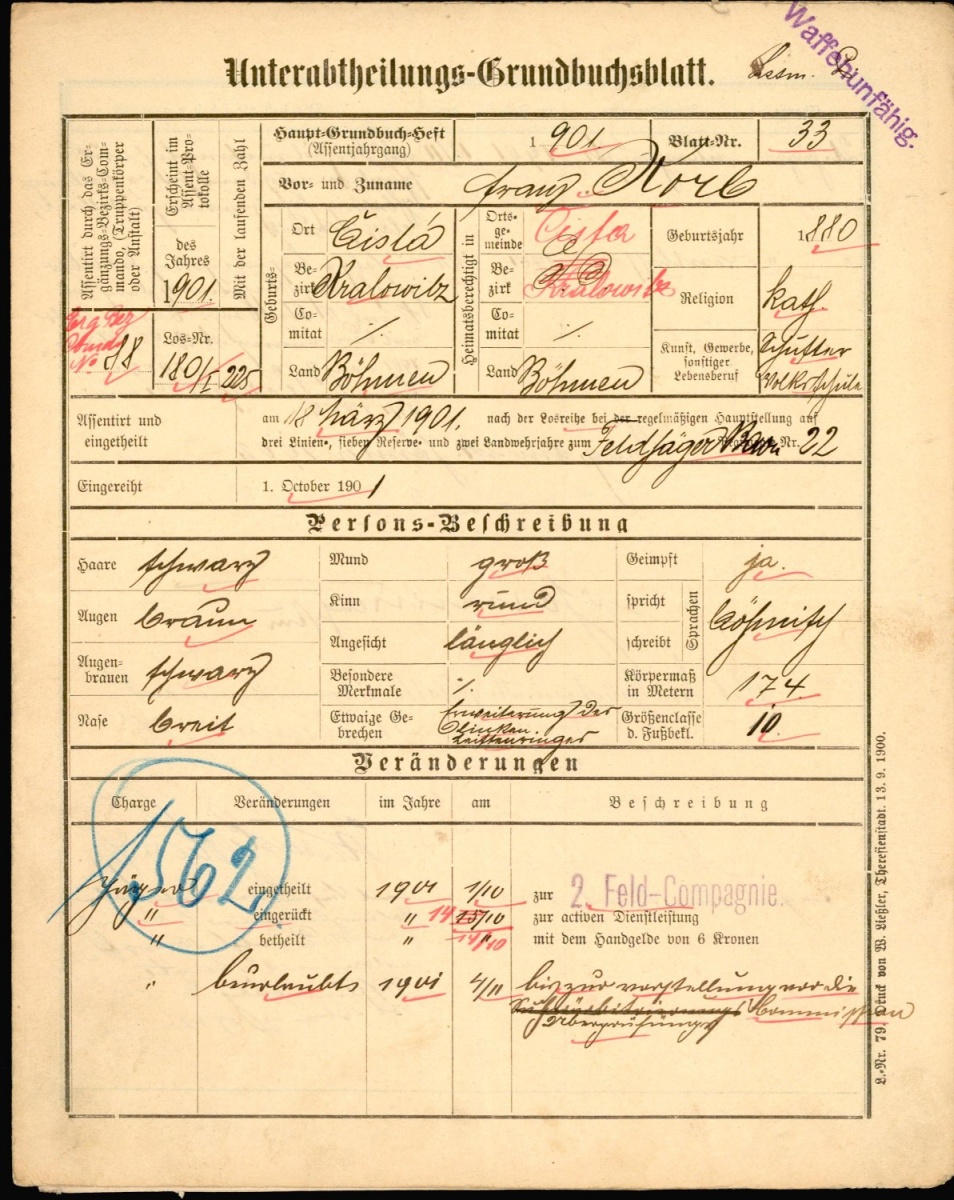 Waffenunfähig.
Unterabtheilungs-Grundbuchsblatt.
Assentirt durch das Er-
gänzungs-Bezirks-Com-
mando, (Truppenkörper
oder Anstalt)
№ 88
Erscheint im
Assent-Pro-
tokolle
des
Jahres
1901.
Los-Nr.
180/I
Mit der laufenden Zahl
225
Haupt-Grundbuch-Heft
(Assentjahrgang)
1 901.
Blatt-Nr. 33
Vor- und Zuname Franz Korb
Geburts-
Ort Čistá
Be-
zirk Kralowitz
Co-
mitat ·/.
Land Böhmen
Heimatsberechtigt in
Orts-
ge-
meinde Čista
Be-
zirk Kralowitz
Co-
mitat ·/.
Land Böhmen
Geburtsjahr 1880
Religion kath.
Kunst, Gewerbe,
sonstiger
Lebensberuf
Schuster
Volksschule
Assentirt und
eingetheilt
am 18 März 1901. nach der Losreihe bei der regelmäßigen Hauptstellung auf
drei Linien-, sieben Reserve- und zwei Landwehrjahre zum Feldjäger Baon Nr. 22
Eingereiht 1. October 1901
Persons-Beschreibung
Haare schwarz
Mund groß
Geimpft ja.
Augen braun
Kinn rund
spricht
Sprachen
böhmisch
Angesicht länglich
schreibt
Augen-
brauen schwarz
Besondere
Merkmale ·/.
Körpermaß
in Metern 174
Nase breit
Etwaige Ge-
brechen
Erweiterung des
linken
Leistenringes
Größenclasse
d. Fußbekl. 10.
Veränderungen
Charge Veränderungen im Jahre am Beschreibung
1562
Jäger eingetheilt 1901 1/10 zur 2. Feld-Compagnie.
" eingerückt " 14 15/10 zur activen Dienstleistung
" betheilt " 14/10 mit dem Handgelde von 6 Kronen
" beurlaubt 1901 4/11 bis zur Vorstellung vor die
Commission
Überprüfungs
L.-Nr. 79. Druck von W. Ließler, Theresienstadt. 13. 9. 1900.